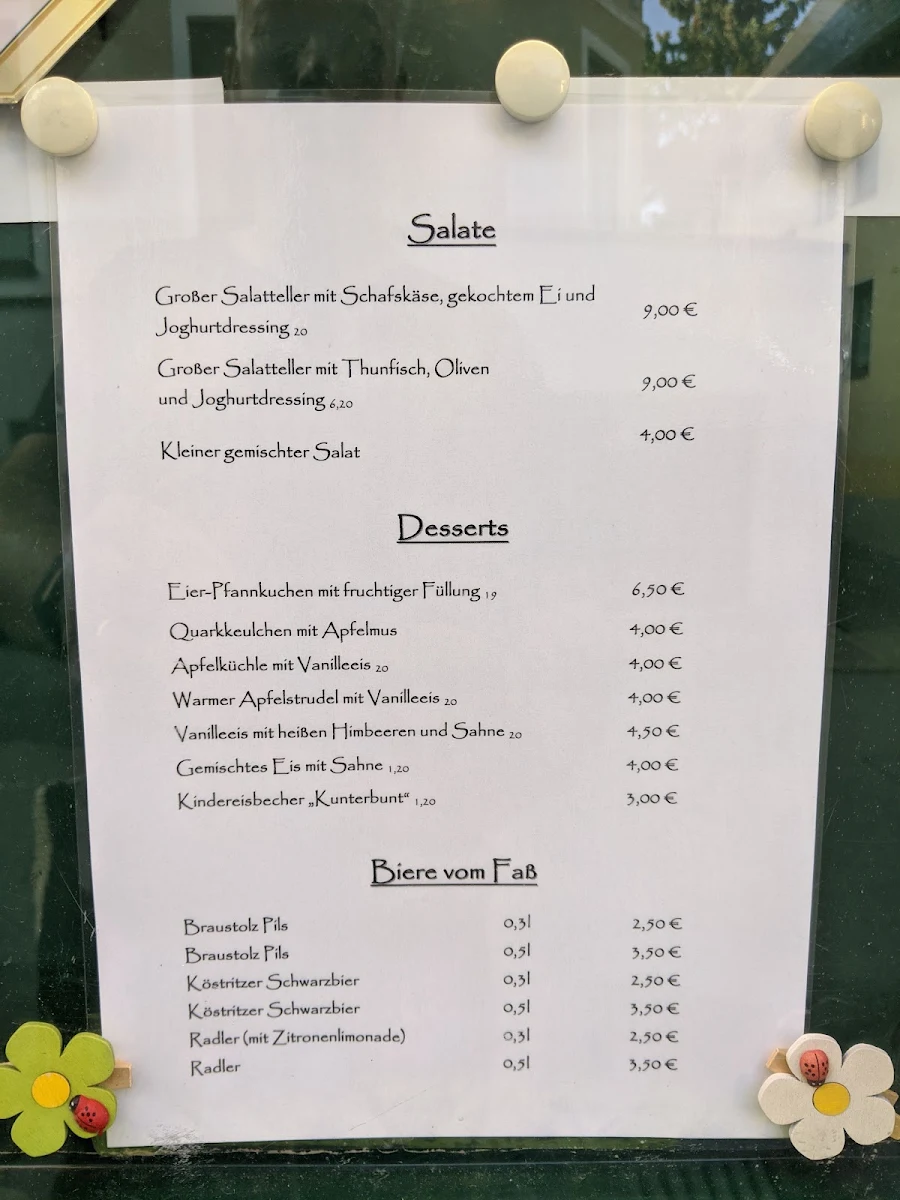 Salate
Großer Salatteller mit Schafskäse, gekochtem Ei und
Joghurtdressing 20 9,00 €
Großer Salatteller mit Thunfisch, Oliven
und Joghurtdressing 6,20 9,00 €
Kleiner gemischter Salat 4,00 €
Desserts
Eier-Pfannkuchen mit fruchtiger Füllung 19 6,50 €
Quarkkeulchen mit Apfelmus 4,00 €
Apfelküchle mit Vanilleeis 20 4,00 €
Warmer Apfelstrudel mit Vanilleeis 20 4,00 €
Vanilleeis mit heißen Himbeeren und Sahne 20 4,50 €
Gemischtes Eis mit Sahne 1,20 4,00 €
Kindereisbecher „Kunterbunt“ 1,20 3,00 €
Biere vom Faß
Braustolz Pils 0,3l 2,50 €
Braustolz Pils 0,5l 3,50 €
Köstritzer Schwarzbier 0,3l 2,50 €
Köstritzer Schwarzbier 0,5l 3,50 €
Radler (mit Zitronenlimonade) 0,3l 2,50 €
Radler 0,5l 3,50 €